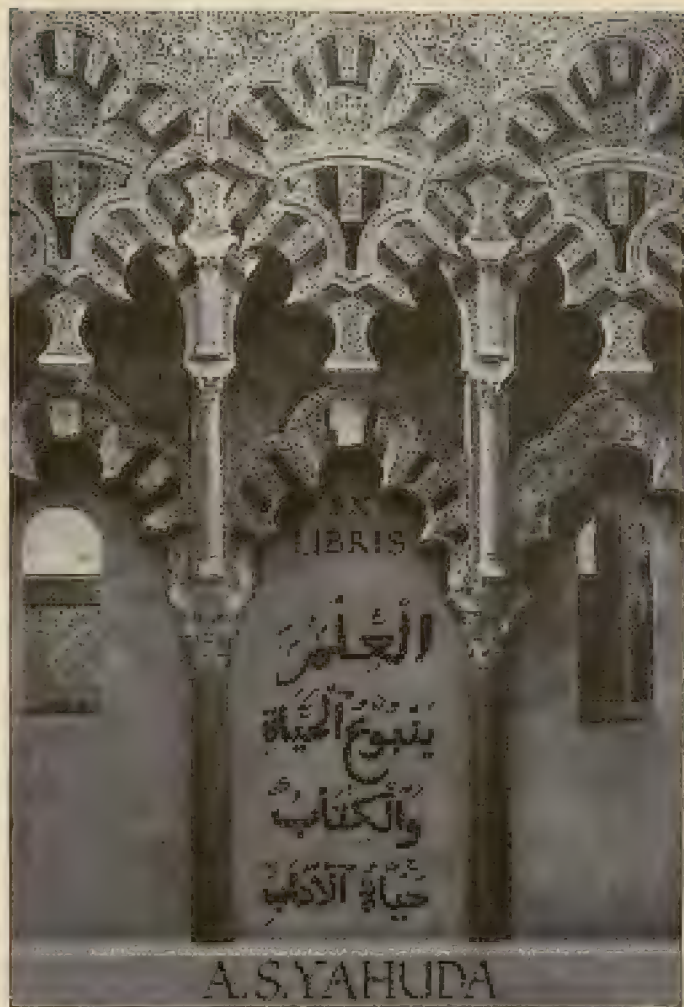 EX
LIBRIS
اَلْعِلْمُ
يَنْبُوعُ الْحَيَاةِ
وَالْكِتَابُ
حَيَاةُ الْآدَابِ
A.S.YAHUDA